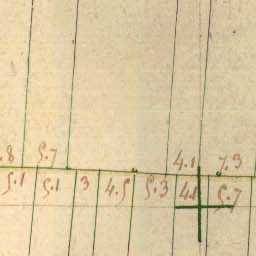 .8 5.7 4.1 7.3
5.1 5.1 3 4.5 5.3 4.1 5.7